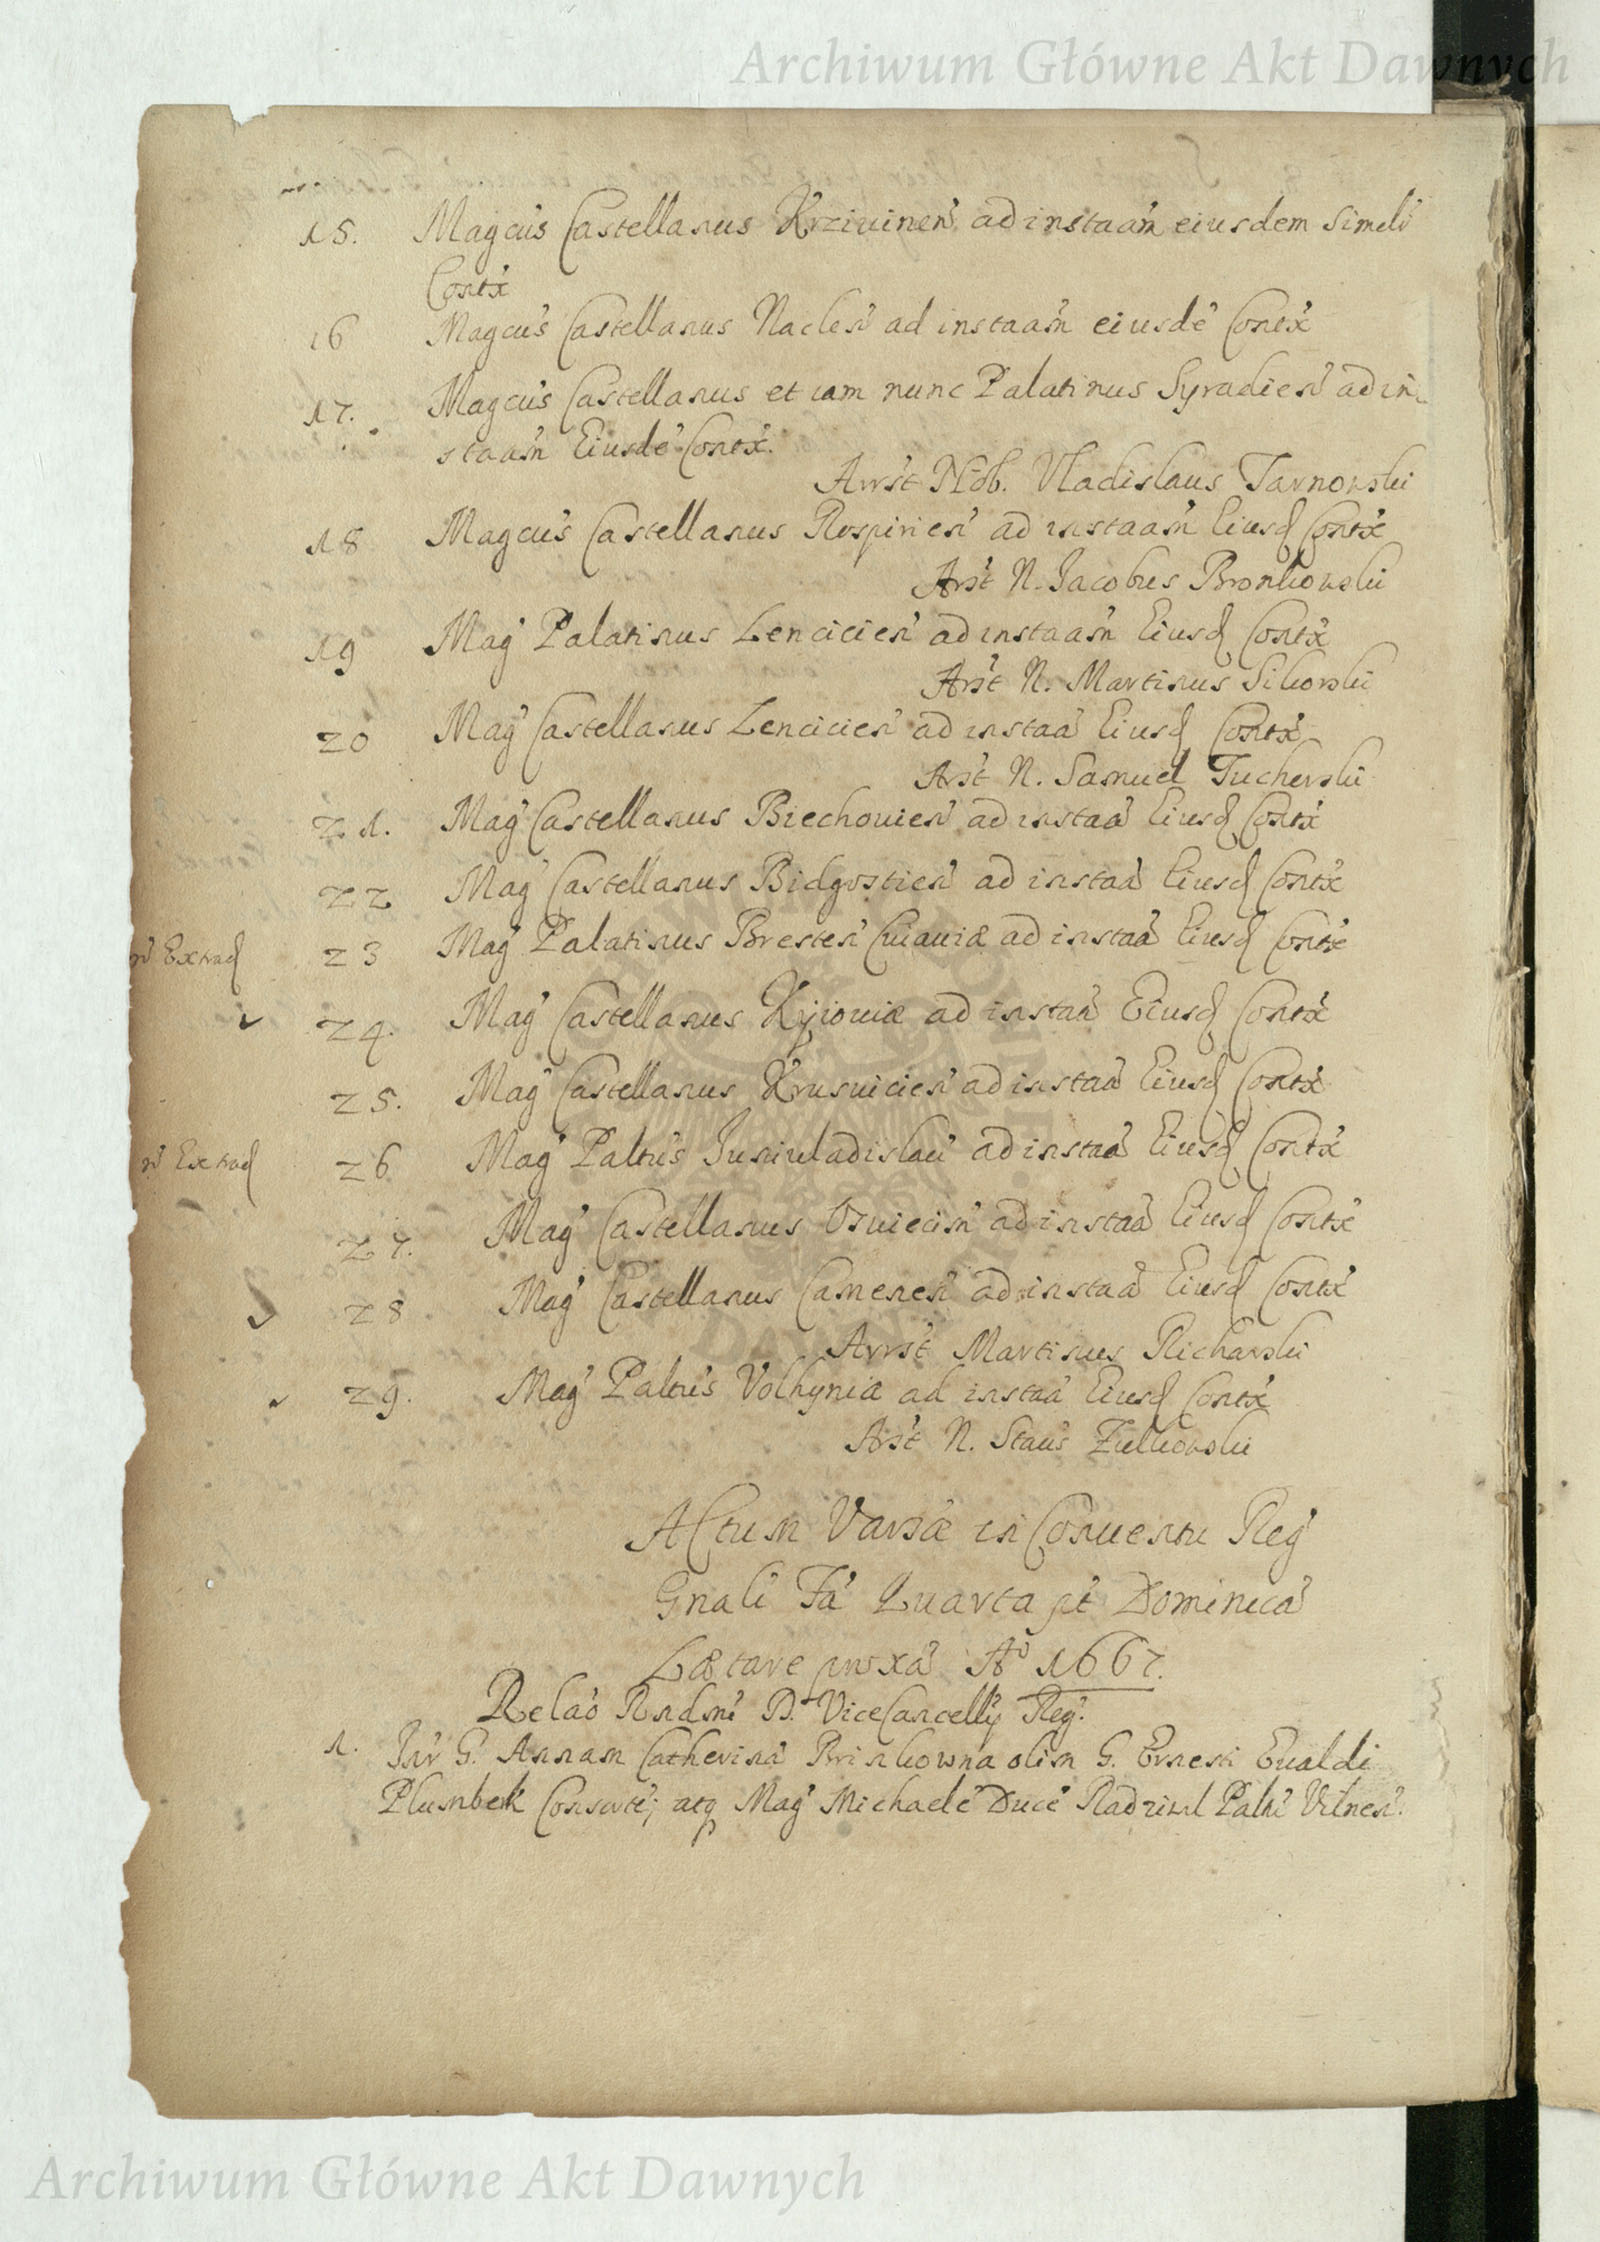 Archiwum Główne Akt Dawnych
15. Magcus Castellanus Krziuinen ad instaam eiusdem Simili
Contx
16 Magcus Castellanus Naclen ad instaam eiusde Contx
17. Magcus Castellanus et iam nunc Palatinus Syradien ad in
staam Eiusde Contx.
Arrst Nob. Vladislaus Tarnowski
18 Magcus Castellanus Rospirien ad instaam Eiusd Contx
Arst N. Jacobus Bronkowski
19 Mag Palatinus Lencicien ad instaam Eiusd Contx
Arst N. Martinus Sikorski
20 Mag Castellanus Lencicien ad instaa Eiusd Contx
Arst N. Samuel Tucherski
21. Mag Castellanus Biechouien ad instaa Eiusd Contx
22 Mag Castellanus Bidgostien ad instaa Eiusd Contx
n Extrad 23 Mag Palatinus Bresten Cuiauiæ ad instaa Eiusd Contx
24. Mag Castellanus Kyiouiæ ad instaa Eiusd Contx
25. Mag Castellanus Krusuicien ad instaa Eiusd Contx
n Extrad 26 Mag Paltus Juniuladislau ad instaa Eiusd Contx
27. Mag Castellanus Osuiecim ad instaa Eiusd Contx
28 Mag Castellanus Camenen ad instaa Eiusd Contx
Arrst Martinus Richarski
29. Mag Paltus Volhyniæ ad instaa Eiusd Contx
Arst N. Staus Zulkowski
Actum Varsæ in Conuentu Reg
Gnali Fa Quarta pt Dominica
Lætare proxa Ao 1667.
Relao Rndmi D. ViceCancellÿ Reg.
1. Inr G. Annam Catherina Brinkowna olim G. Ernesti Eualdi
Plumbek Consorte; atq Mag Michaele Duce Radziwil Paltu Vilnen.
Archiwum Główne Akt Dawnych